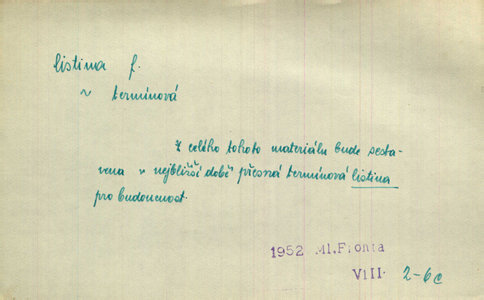 listina f.
~ termínová
Z celého tohoto materiálu bude sesta-
vena v nejbližší době přesná termínová listina
pro budoucnost.
1952 Ml. Fronta
VIII. 2-6c